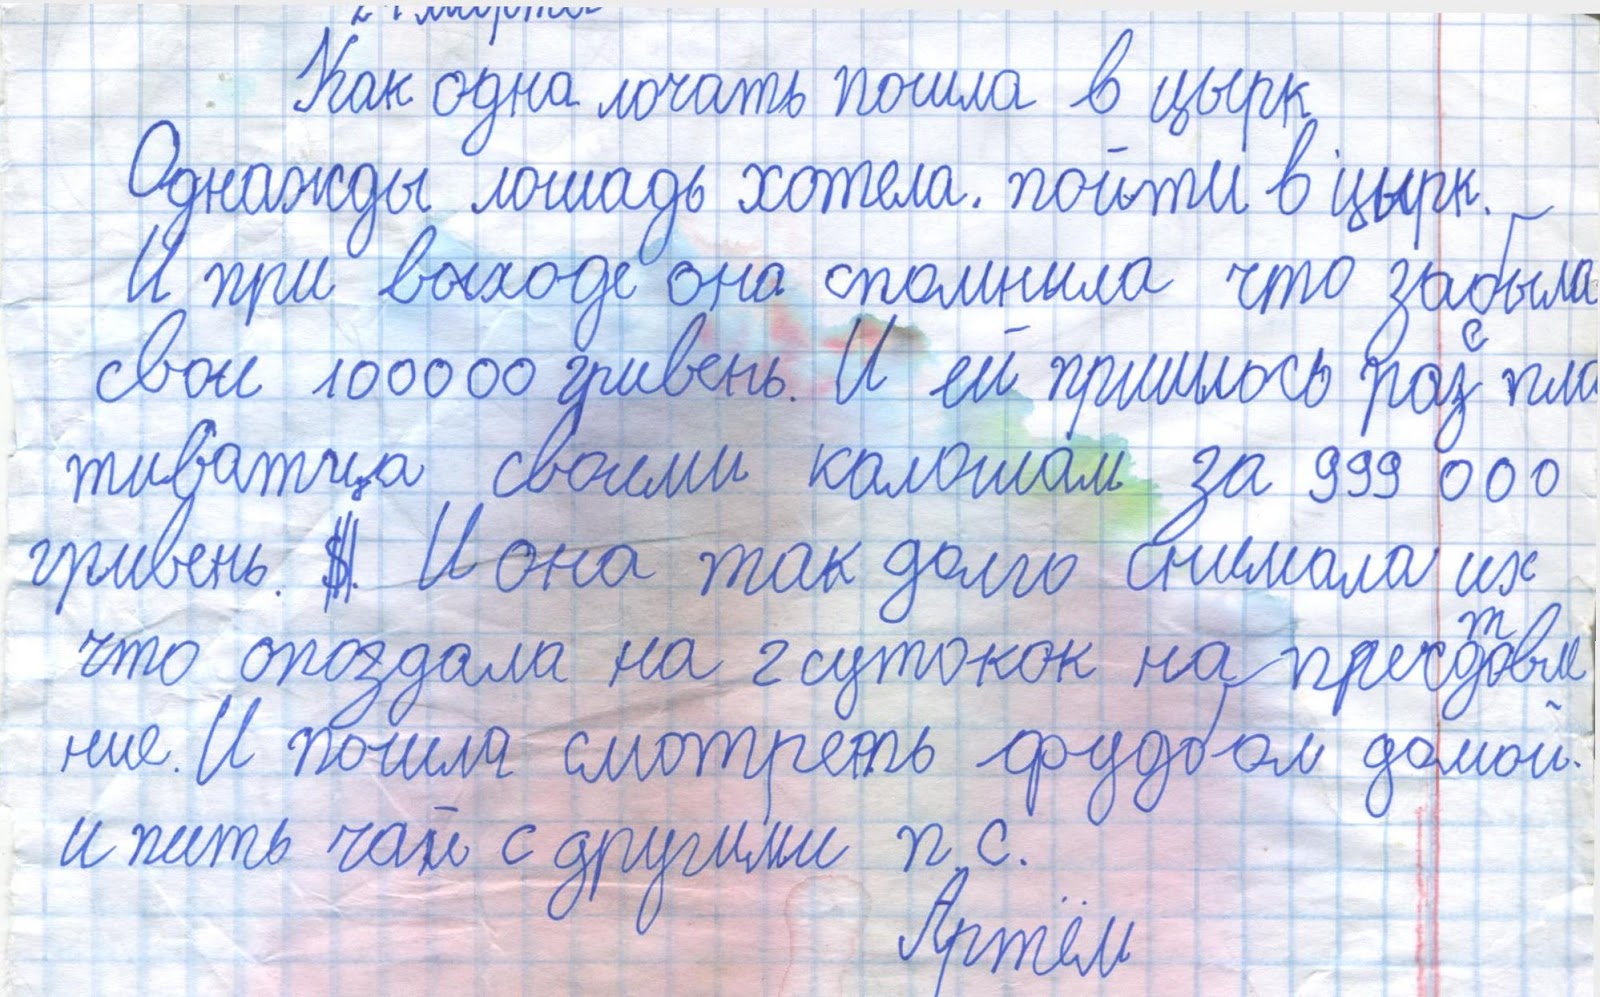 Как одна лочать пошла в цырк
Однажды лошадь хотела. пойти в цырк.
И при выходе она спомнила что забыла
свои 100000 гривень. И ей пришлось разспла
тиватица своими калошам за 999 000
гривень. $. И она так долго снимала их
что опоздала на 2 сутокок на престдовле
ние. И пошла смотреть фудбол домой.
и пить чай с другими п. с.
Артём